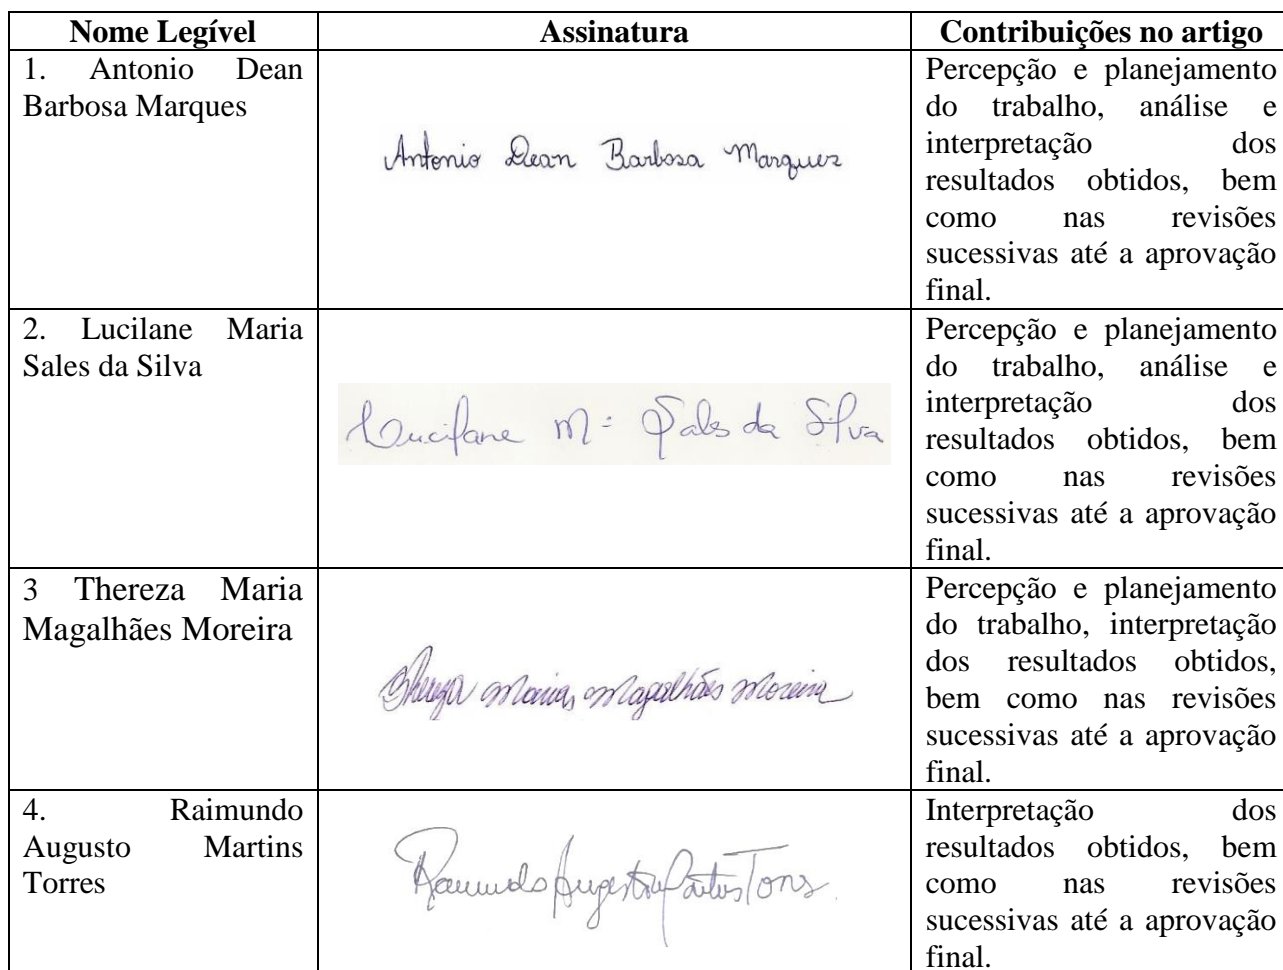 Nome Legível
Assinatura
Contribuições no artigo
1. Antonio Dean
Barbosa Marques
Antonio Dean Barbosa Marques
Percepção e planejamento
do trabalho, análise e
interpretação dos
resultados obtidos, bem
como nas revisões
sucessivas até a aprovação
final.
2. Lucilane Maria
Sales da Silva
Lucilane Mª Sales da Silva
Percepção e planejamento
do trabalho, análise e
interpretação dos
resultados obtidos, bem
como nas revisões
sucessivas até a aprovação
final.
3 Thereza Maria
Magalhães Moreira
Thereza Maria Magalhães Moreira
Percepção e planejamento
do trabalho, interpretação
dos resultados obtidos,
bem como nas revisões
sucessivas até a aprovação
final.
4. Raimundo
Augusto Martins
Torres
Raimundo Augusto Martins Torres
Interpretação dos
resultados obtidos, bem
como nas revisões
sucessivas até a aprovação
final.